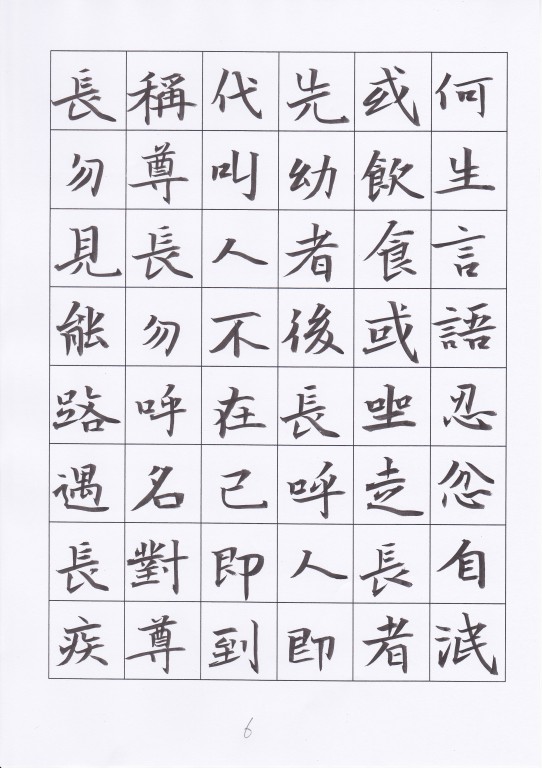 何生言語忍忿自泯
或飲食或坐走長者
先幼者後長呼人即
代叫人不在己即到
稱尊長勿呼名對尊
長勿見能路遇長疾
6